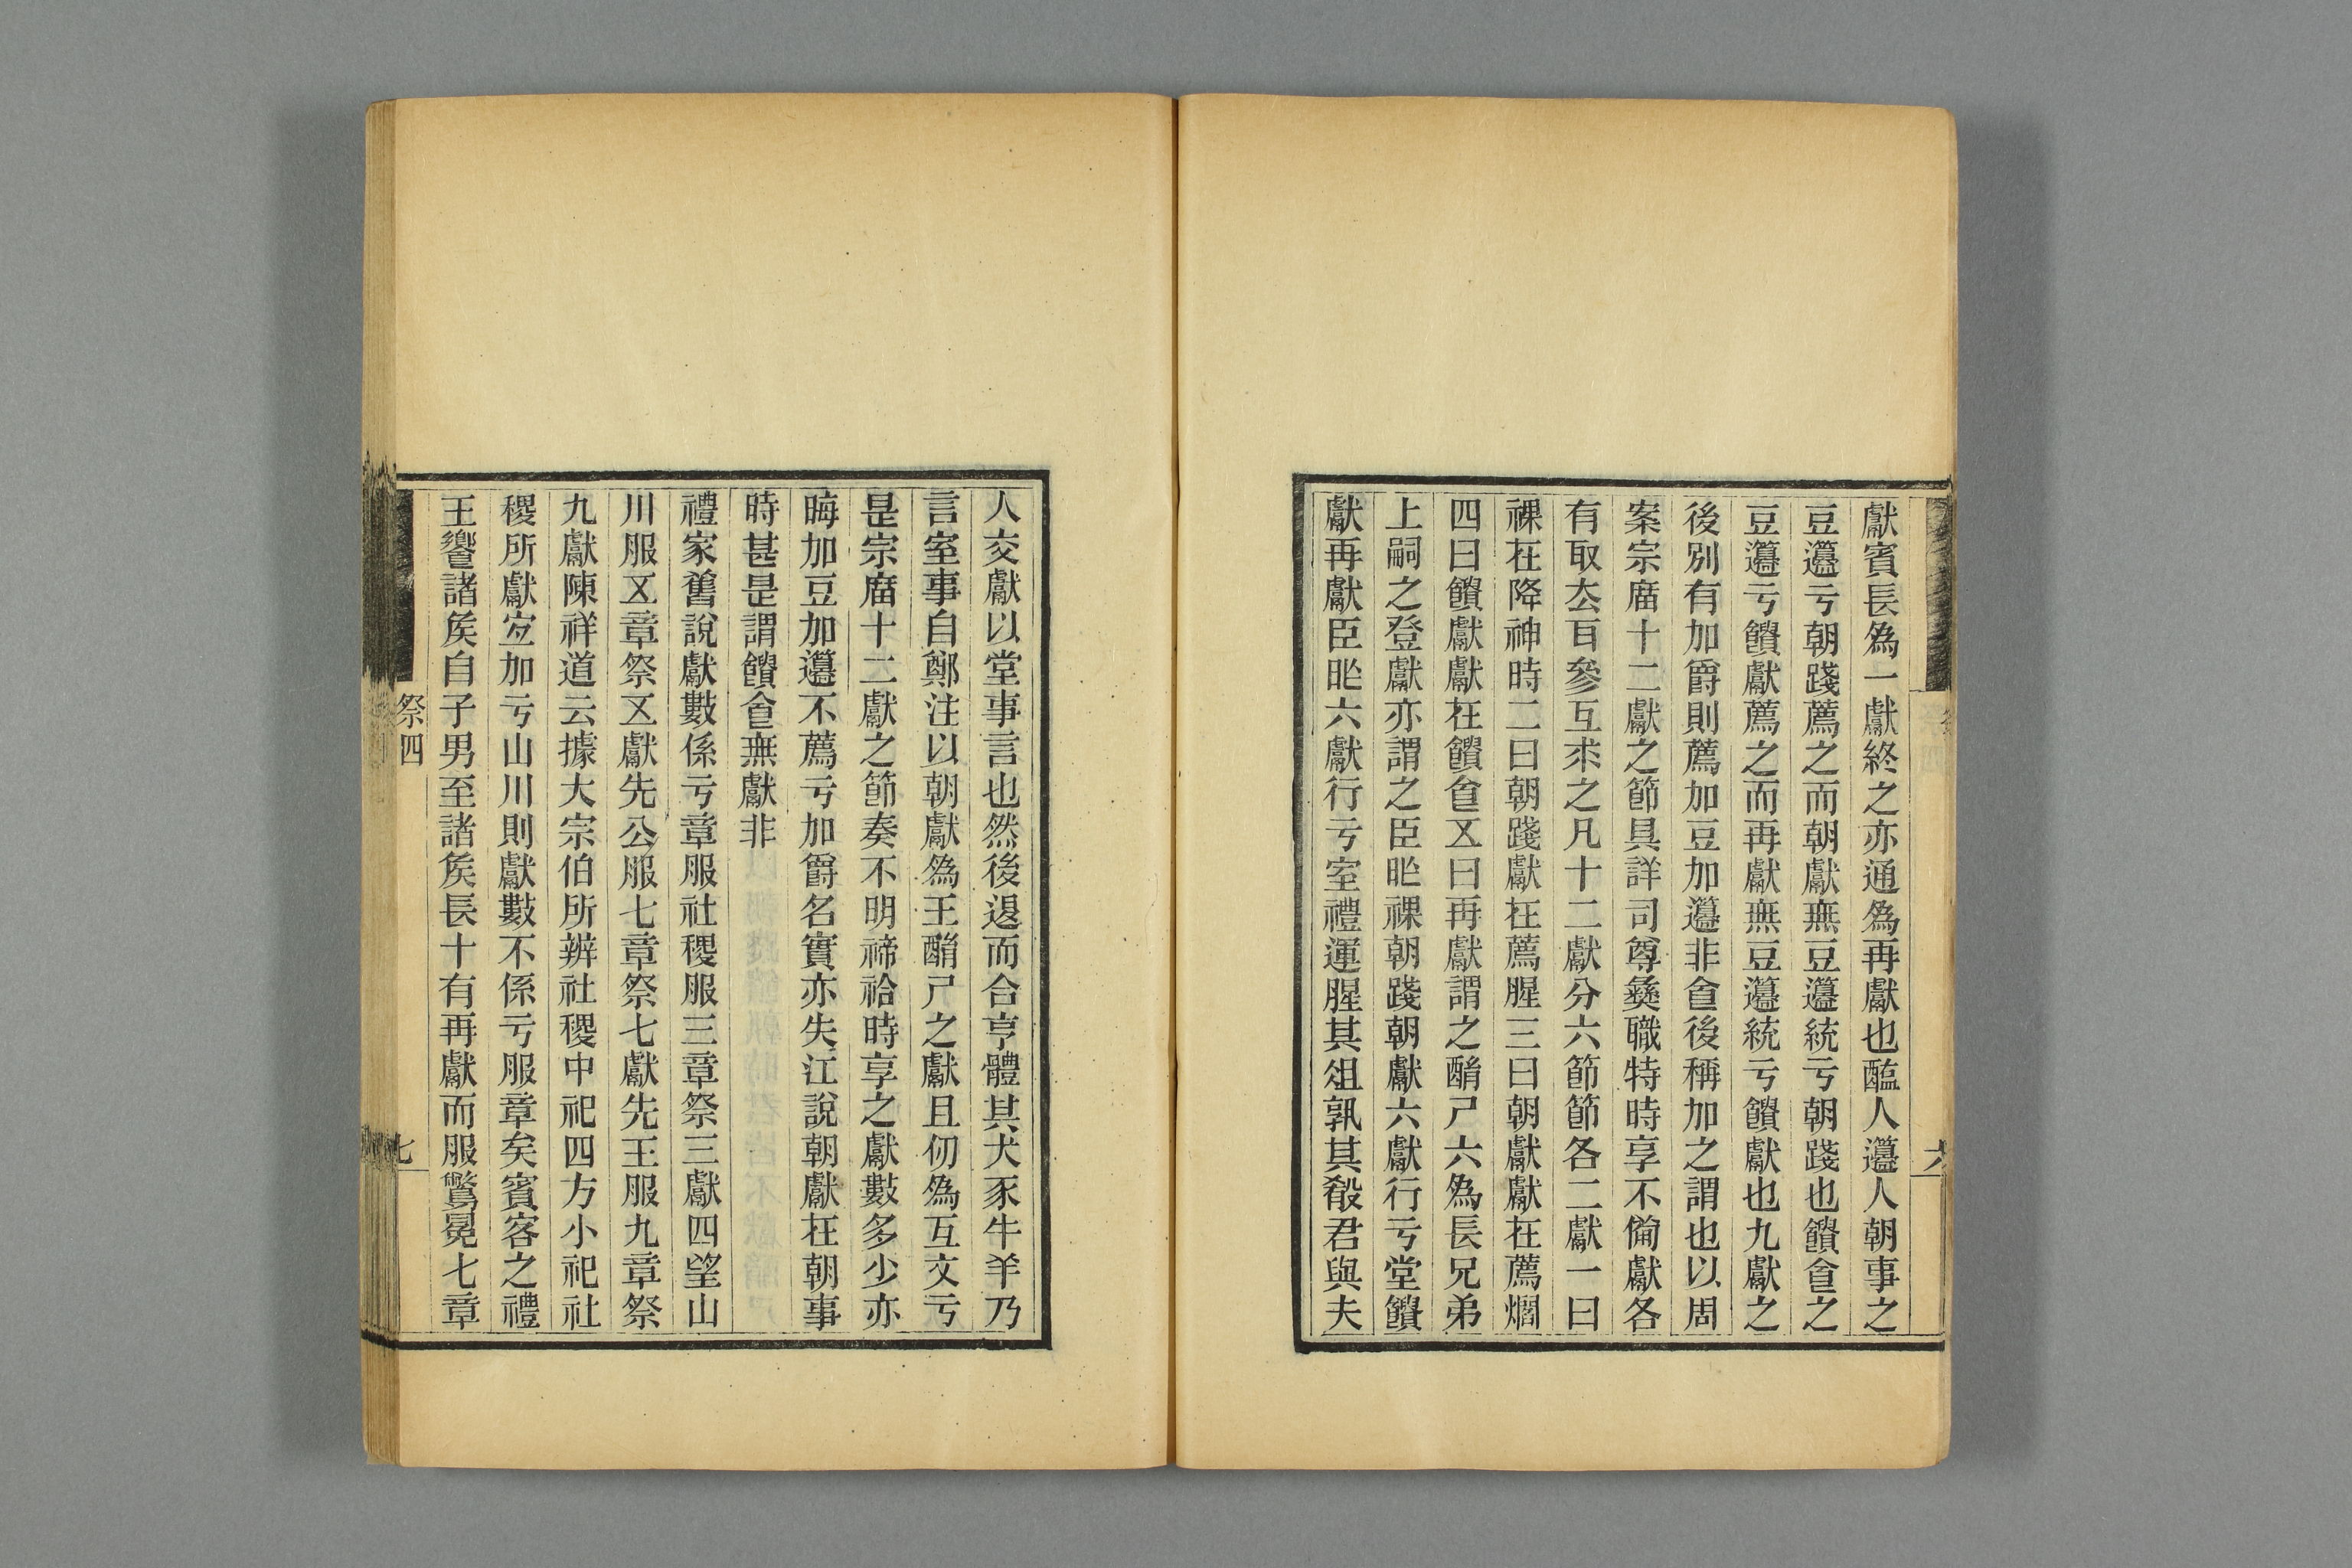 獻賓長爲一獻終之亦通爲再獻也醢人籩人朝事之
豆籩亏朝踐薦之而朝獻無豆籩統亏朝踐也饋㑹之
豆籩亏饋獻薦之而再獻無豆籩統亏饋獻也九獻之
後別有加爵則薦加豆加籩非㑹後稱加之謂也以周
案宗庿十二獻之節具詳司尊彝職特時享不僃獻各
有取厺百參互求之凡十二獻分六節節各二獻一曰
祼在降神時二曰朝踐獻在薦腥三曰朝獻獻在薦爓
四曰饋獻獻在饋㑹五曰再獻謂之酳尸六爲長兄弟
上嗣之登獻亦謂之臣昨祼朝踐朝獻六獻行亏堂饋
獻再獻臣昨六獻行亏室禮運腥其俎孰其殽君與夫
六
人交獻以堂事言也然後退而合亨體其犬豕牛羊乃
言室事自鄭注以朝獻爲王酳尸之獻且仞爲互文亏
是宗庿十二獻之節奏不明禘祫時享之獻數多少亦
晦加豆加籩不薦亏加爵名實亦失江說朝獻在朝事
時甚是謂饋㑹無獻非
禮家舊說獻數係亏章服社稷服三章祭三獻四望山
川服五章祭五獻先公服七章祭七獻先王服九章祭
九獻陳祥道云據大宗伯所辨社稷中祀四方小祀社
稷所獻宐加亏山川則獻數不係亏服章矣賓客之禮
王饗諸矦自子男至諸矦長十有再獻而服鷩冕七章
祭四
七